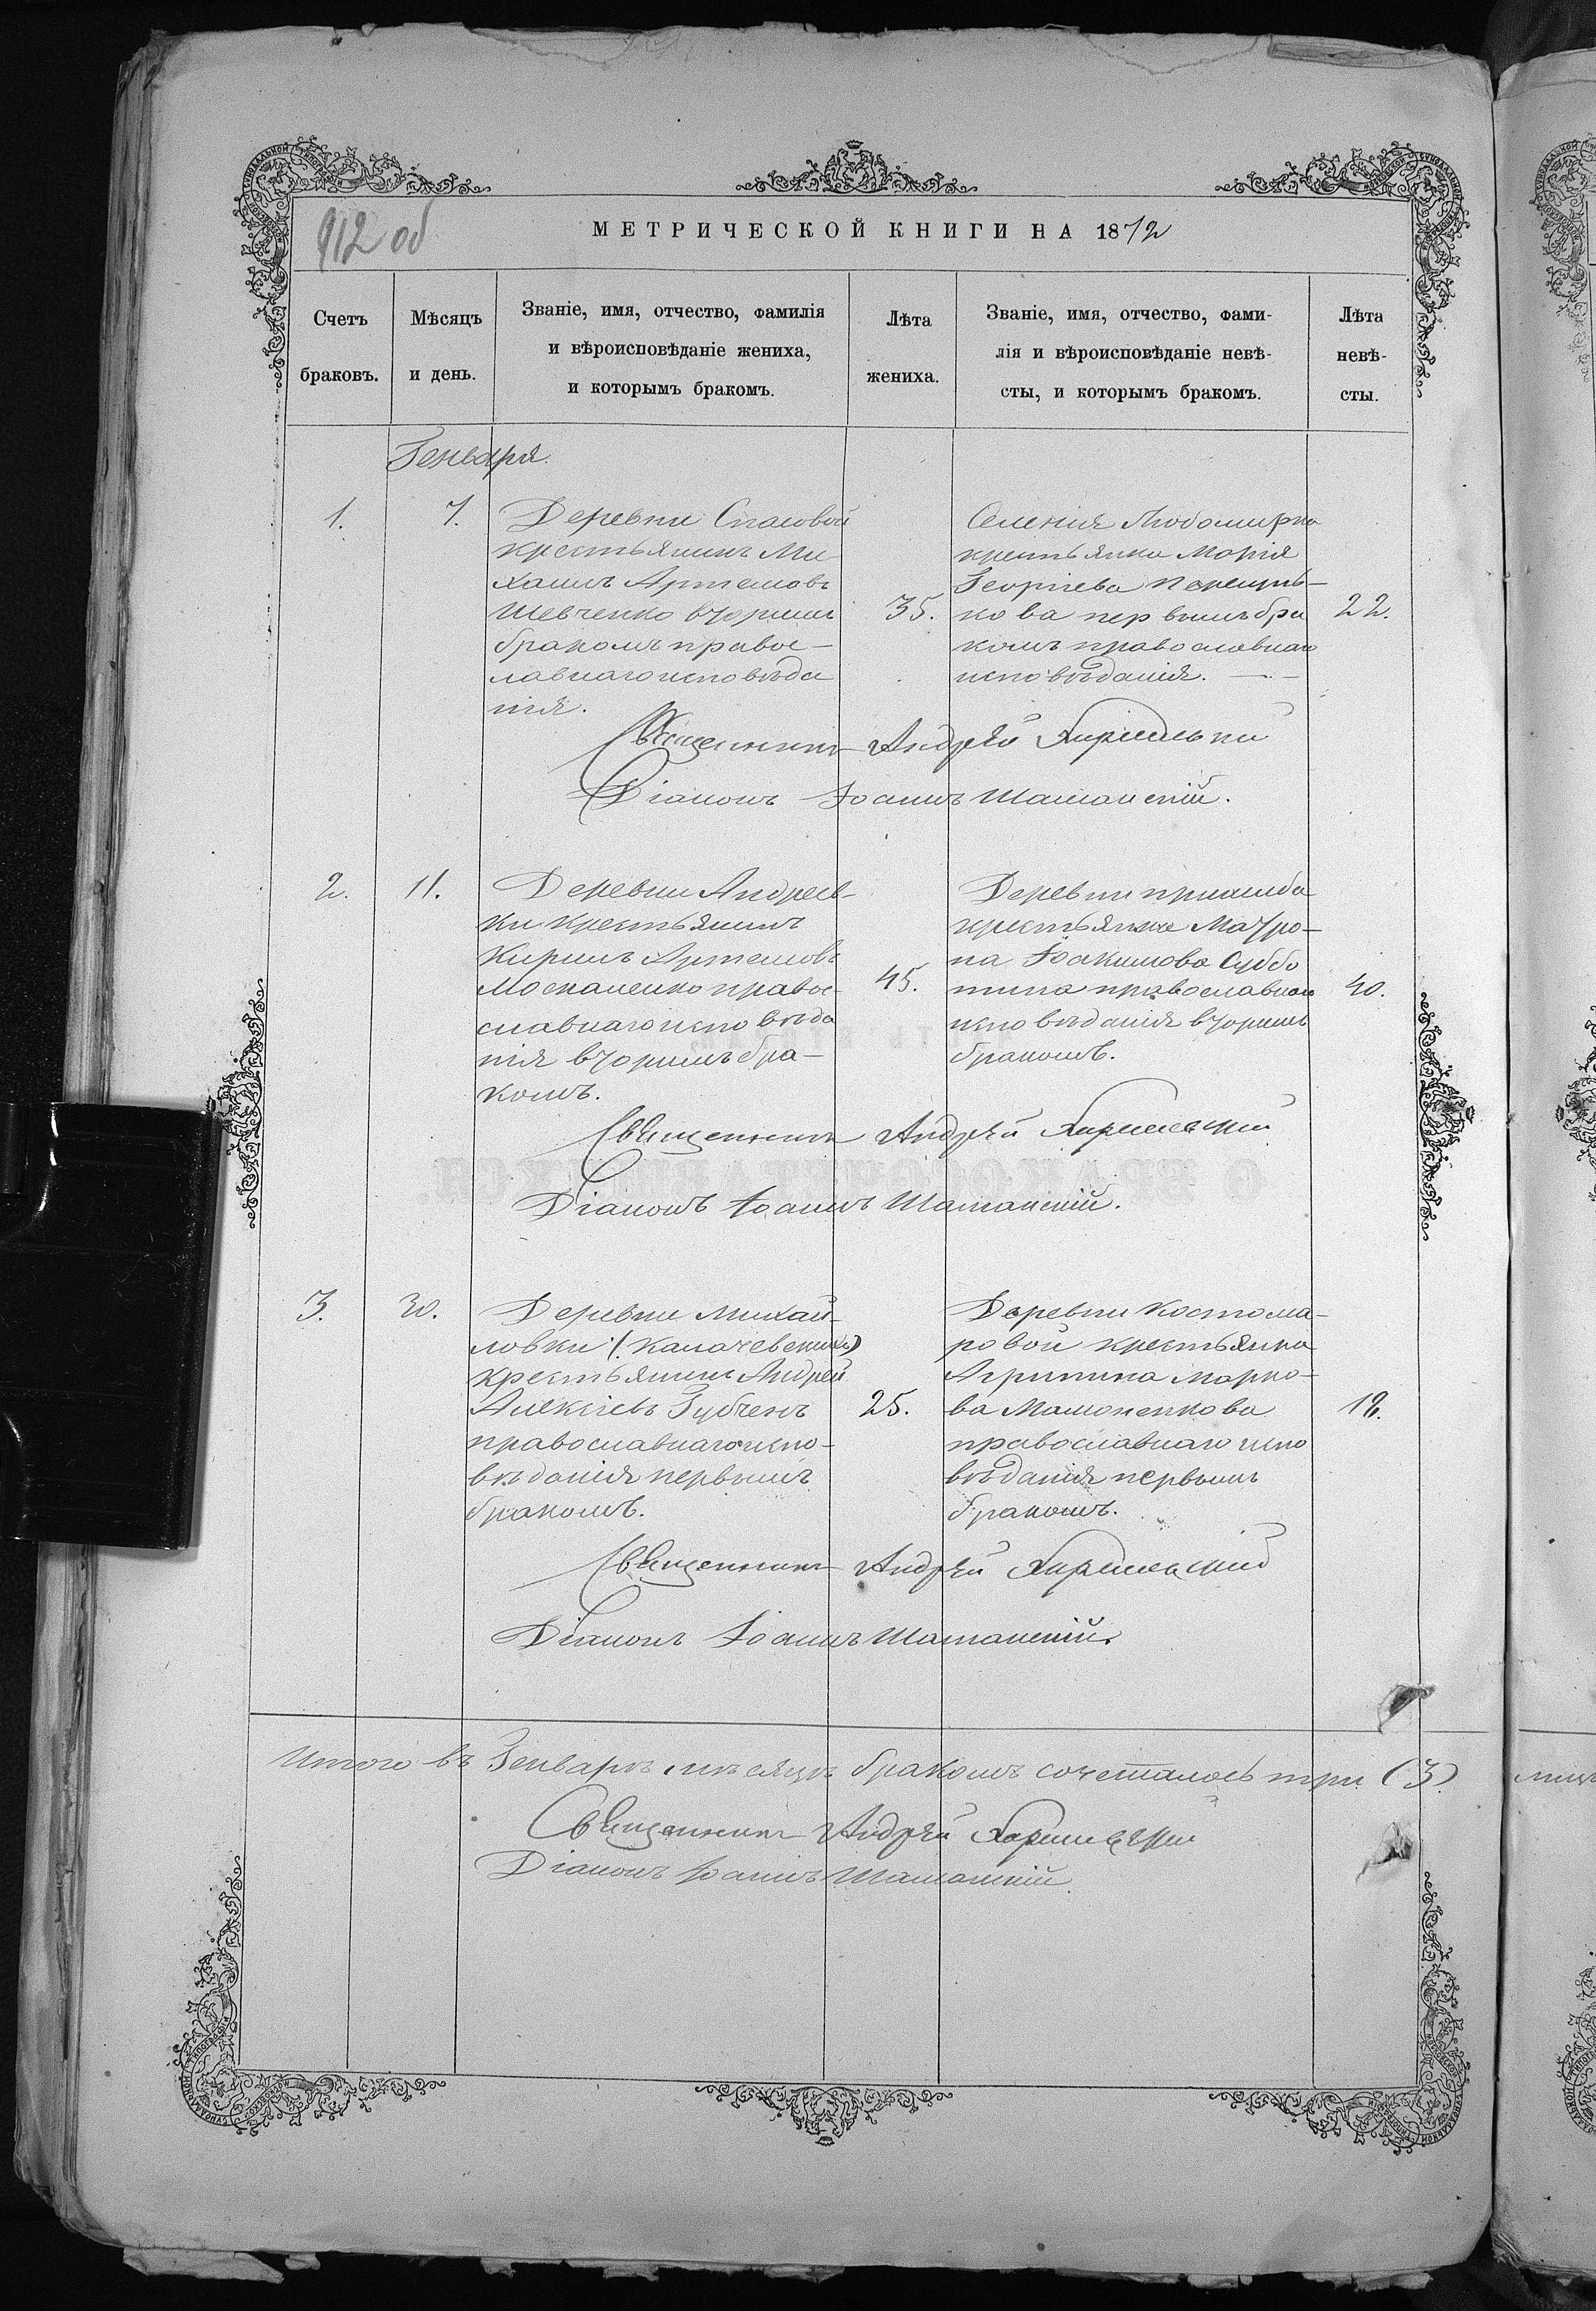 912 об
МЕТРИЧЕСКОЙ КНИГИ НА 1872
Счетъ браковъ.
Мѣсяцъ и день.
Званіе, имя, отчество, фамилія
и вѣроисповѣданіе жениха,
и которымъ бракомъ.
Лѣта жениха.
Званіе, имя, отчество, фами-
лія и вѣроисповѣданіе невѣ-
сты, и которымъ бракомъ.
Лѣта невѣ-
сты.
Генваря
1.
7.
Деревни Спасовой
крестьянинъ Ми
хаилъ Артемовъ
Шевченко вторымъ
бракомъ правос-
лавнаго исповѣда
нія.
35.
Селенія Любомирка
крестьянка Марія
Георгіева
кова первымъ бра
комъ православнаго
исповѣданія.
22.
Священникъ Андрей
Діаконъ Іоаннъ
2.
11.
Деревни Андреев-
ки крестьянинъ
Кирилъ Артемовъ
Москаленко правос-
славнаго исповѣда
нія вторымъ бра-
комъ.
45.
Деревни
крестьянка Матро-
на Іоакимова Суббо
тина православнаго
исповѣданія вторымъ
бракомъ.
40.
Священникъ Андрей
Діаконъ Іоаннъ
3.
30.
Деревни Михай-
ловки (Калачевскихъ)
крестьянинъ Андрей
Алексіевъ Зубченъ
православнаго испо-
вѣданія первымъ
бракомъ.
25.
Деревни Костома-
ровой крестьянка
Агрипина Марко-
ва Мамоненкова
православнаго испо
вѣданія первымъ
бракомъ.
Священникъ Андрей
Діаконъ Іоаннъ
Итого въ Генварѣ мѣсяцѣ бракомъ сочеталось три (3)
Священникъ Андрей
Діаконъ Іоаннъ